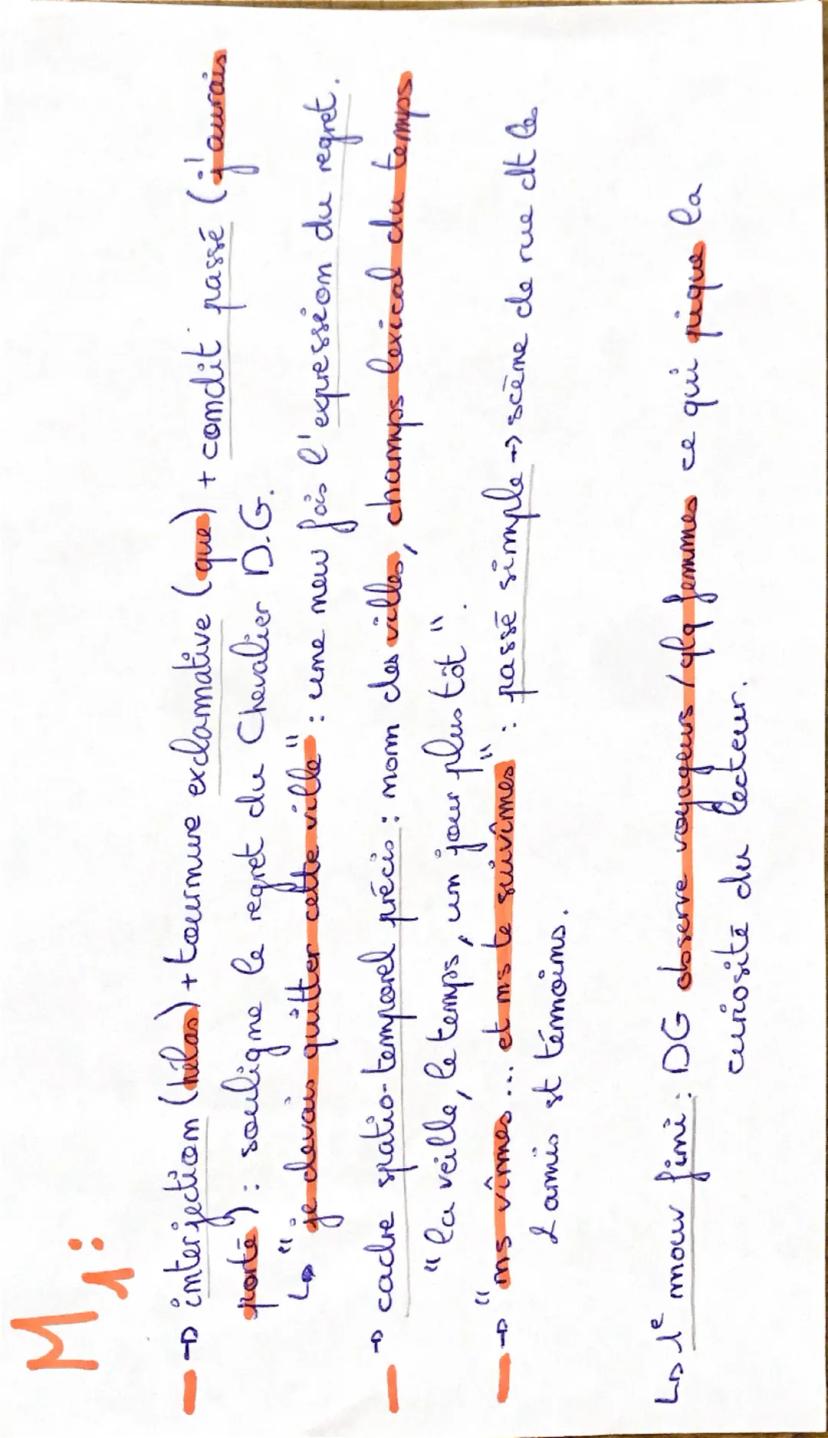 M1:
→ interjection (hélas) + tournure exclamative (que) + condit° passé (j'aurais
porté) : souligne le regret du Chevalier D.G.
↳ " je devais quitter cette ville" : une nouv fois l'expression du regret.
→ cadre spatio-temporel précis : nom des villes, champs lexical du temps
"la veille, le temps, un jour plus tôt".
→ "ns vîmes... et ns le suivîmes" : passé simple → scène de rue dt les
2 amis st témoins.
↳ 1e mouv fini : DG observe voyageurs / qlq femmes ce qui pique la
curiosité du lecteur.